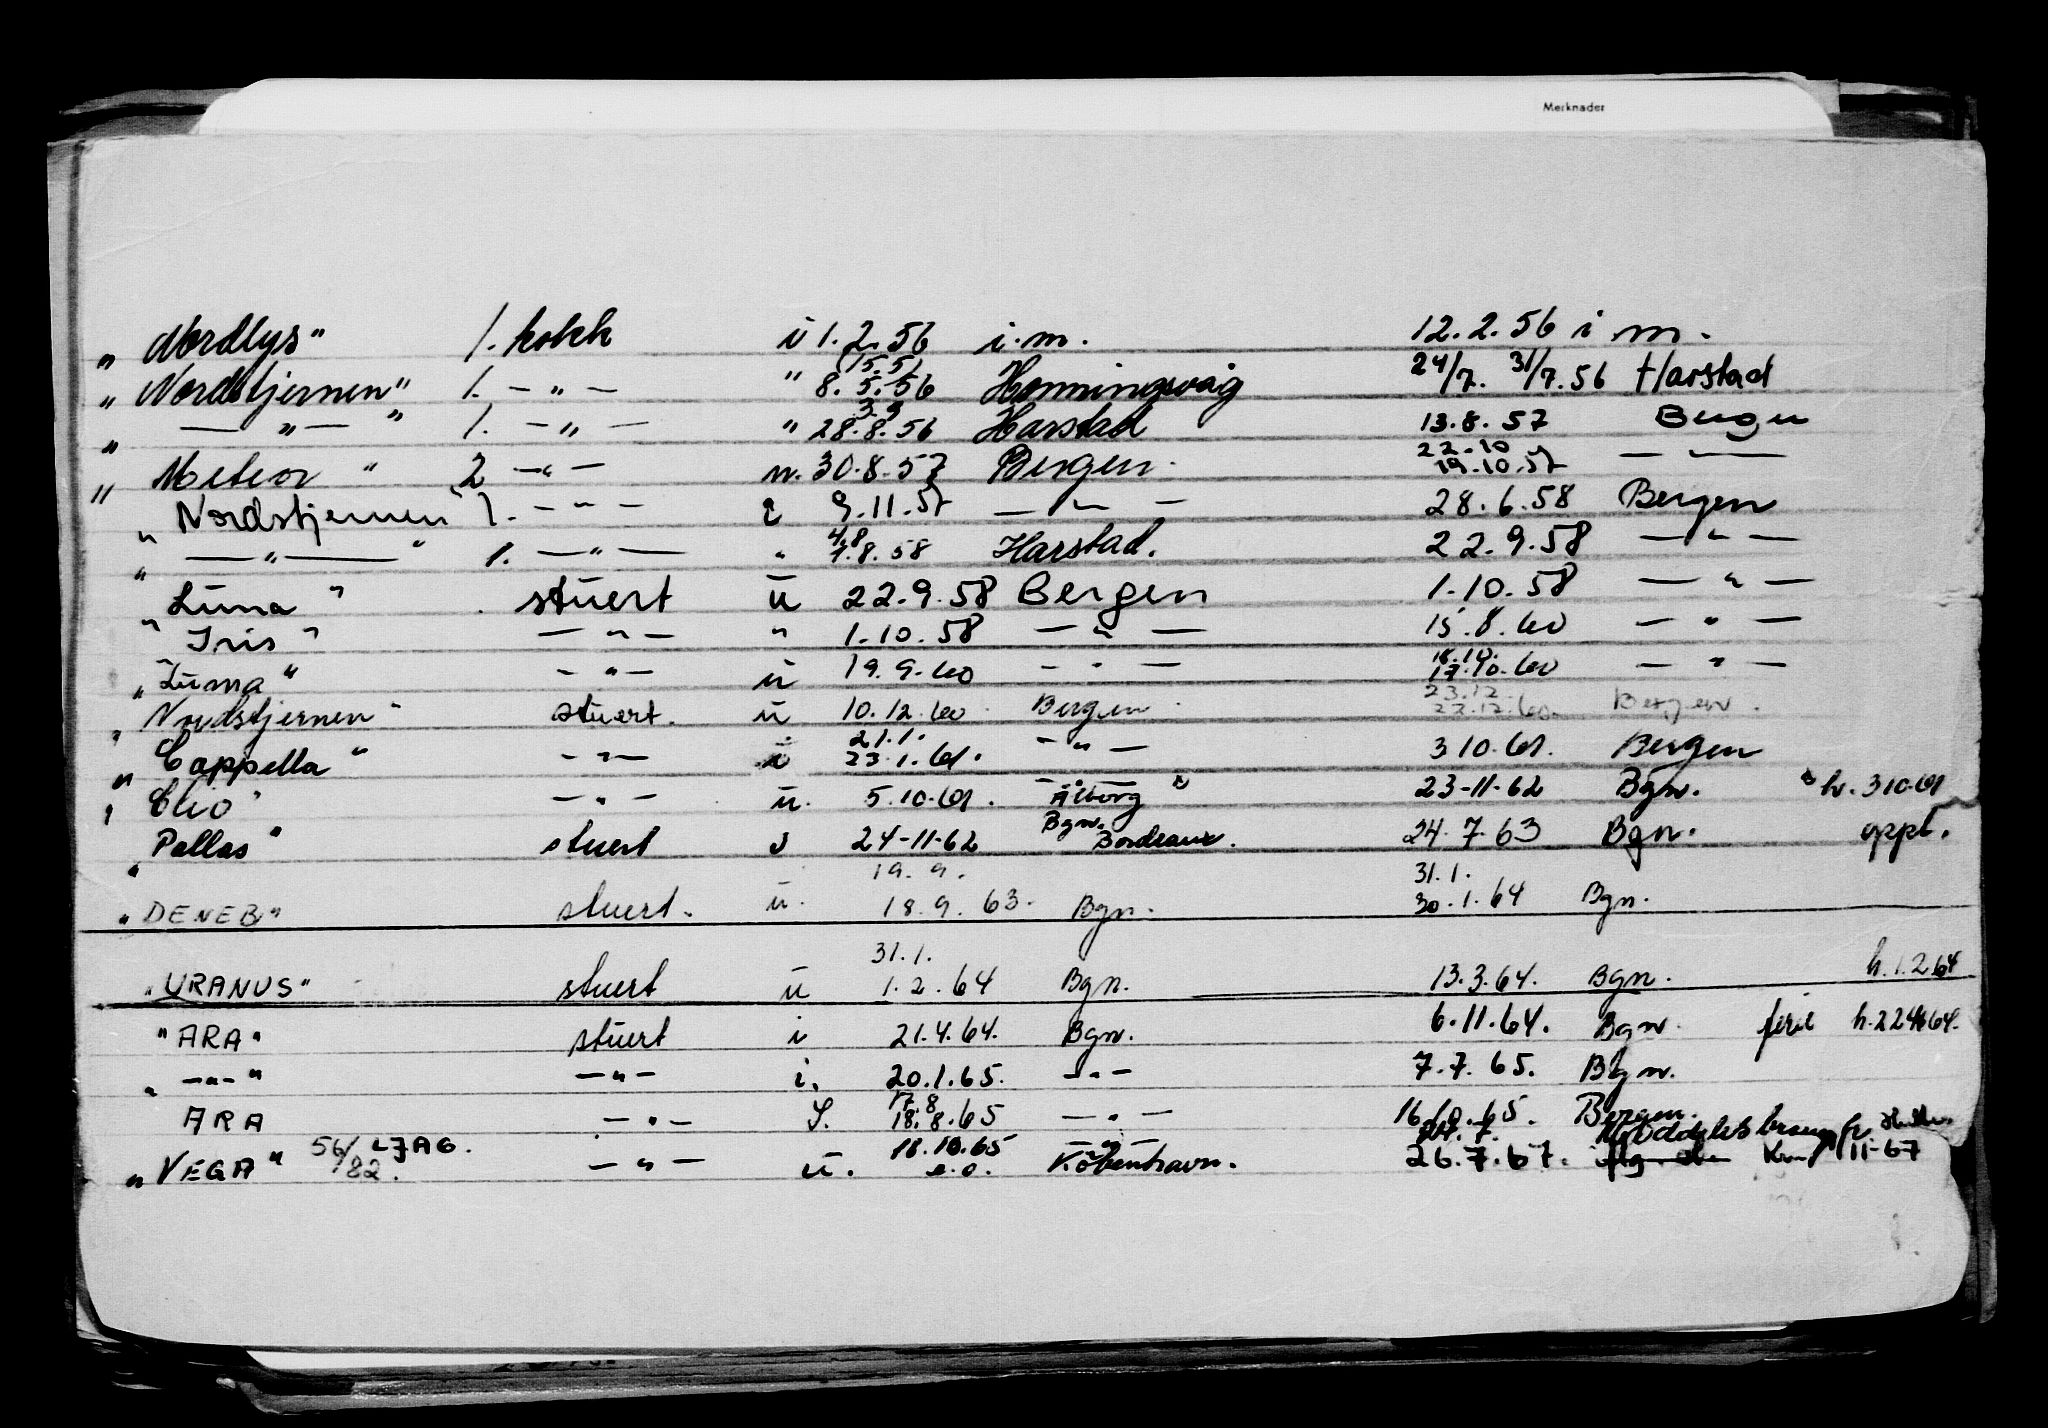 Merknader
"Nordlys" 1. kokk i 1.2.56 i.m. 12.2.56 i m.
15.5.
"Nordstjernen" 1. - " - " 8.5.56 Honningsvåg 24/7. 31/7.56 Harstad
3.9
" — " — " 1. - " - " 28.8.56 Harstad 13.8.57 Bergen
22.10
"Meteor" 2 - " - m. 30.8.57 Bergen. 19.10.57 — " —
"Nordstjernen" 1. - " - i 9.11.57 — " — 28.6.58 Bergen
4.8
" — " — " 1. — " — " 7.8.58 Harstad. 22.9.58 — " —
"Luna" stuert u 22.9.58 Bergen 1.10.58 — " —
"Iris" — " — " 1.10.58 — " — 15.8.60 — " —
18.10.
"Luna" - " - u 19.9.60 - " — 17.10.60 — " —
23.12.
"Nordstjernen" stuert. u 10.12.60 Bergen. 22.12.60. Bergen.
21.1.
"Cappella" - " - 23.1.61. - " — 3 10.61. Bergen
"Clio" — " — u. 5.10.61. Ålborg 23-11-62 Bgn. h. 3.10.61
Bgn.
"Pallas" stuert s 24-11-62 Bordeaux. 24.7.63 Bgn. oppt.
19.9. 31.1.
"DENEB" stuert. u. 18.9.63. Bgn. 30.1.64 Bgn.
31.1.
"URANUS" stuert u 1.2.64 Bgn. 13.3.64. Bgn. h.1.2.64
"ARA" stuert i 21.4.64. Bgn. 6.11.64. Bgn. ferie
" - " - " - " - i. 20.1.65. - " - 7.7.65. Bgn.
17.8
ARA — " — S. 18.8.65 — " — 16.10.65. Bergen.
56/82. LJAG. 18.10.65
"VEGA" — " — u. e.o. Köbenhavn. 26.7.67. 11-67